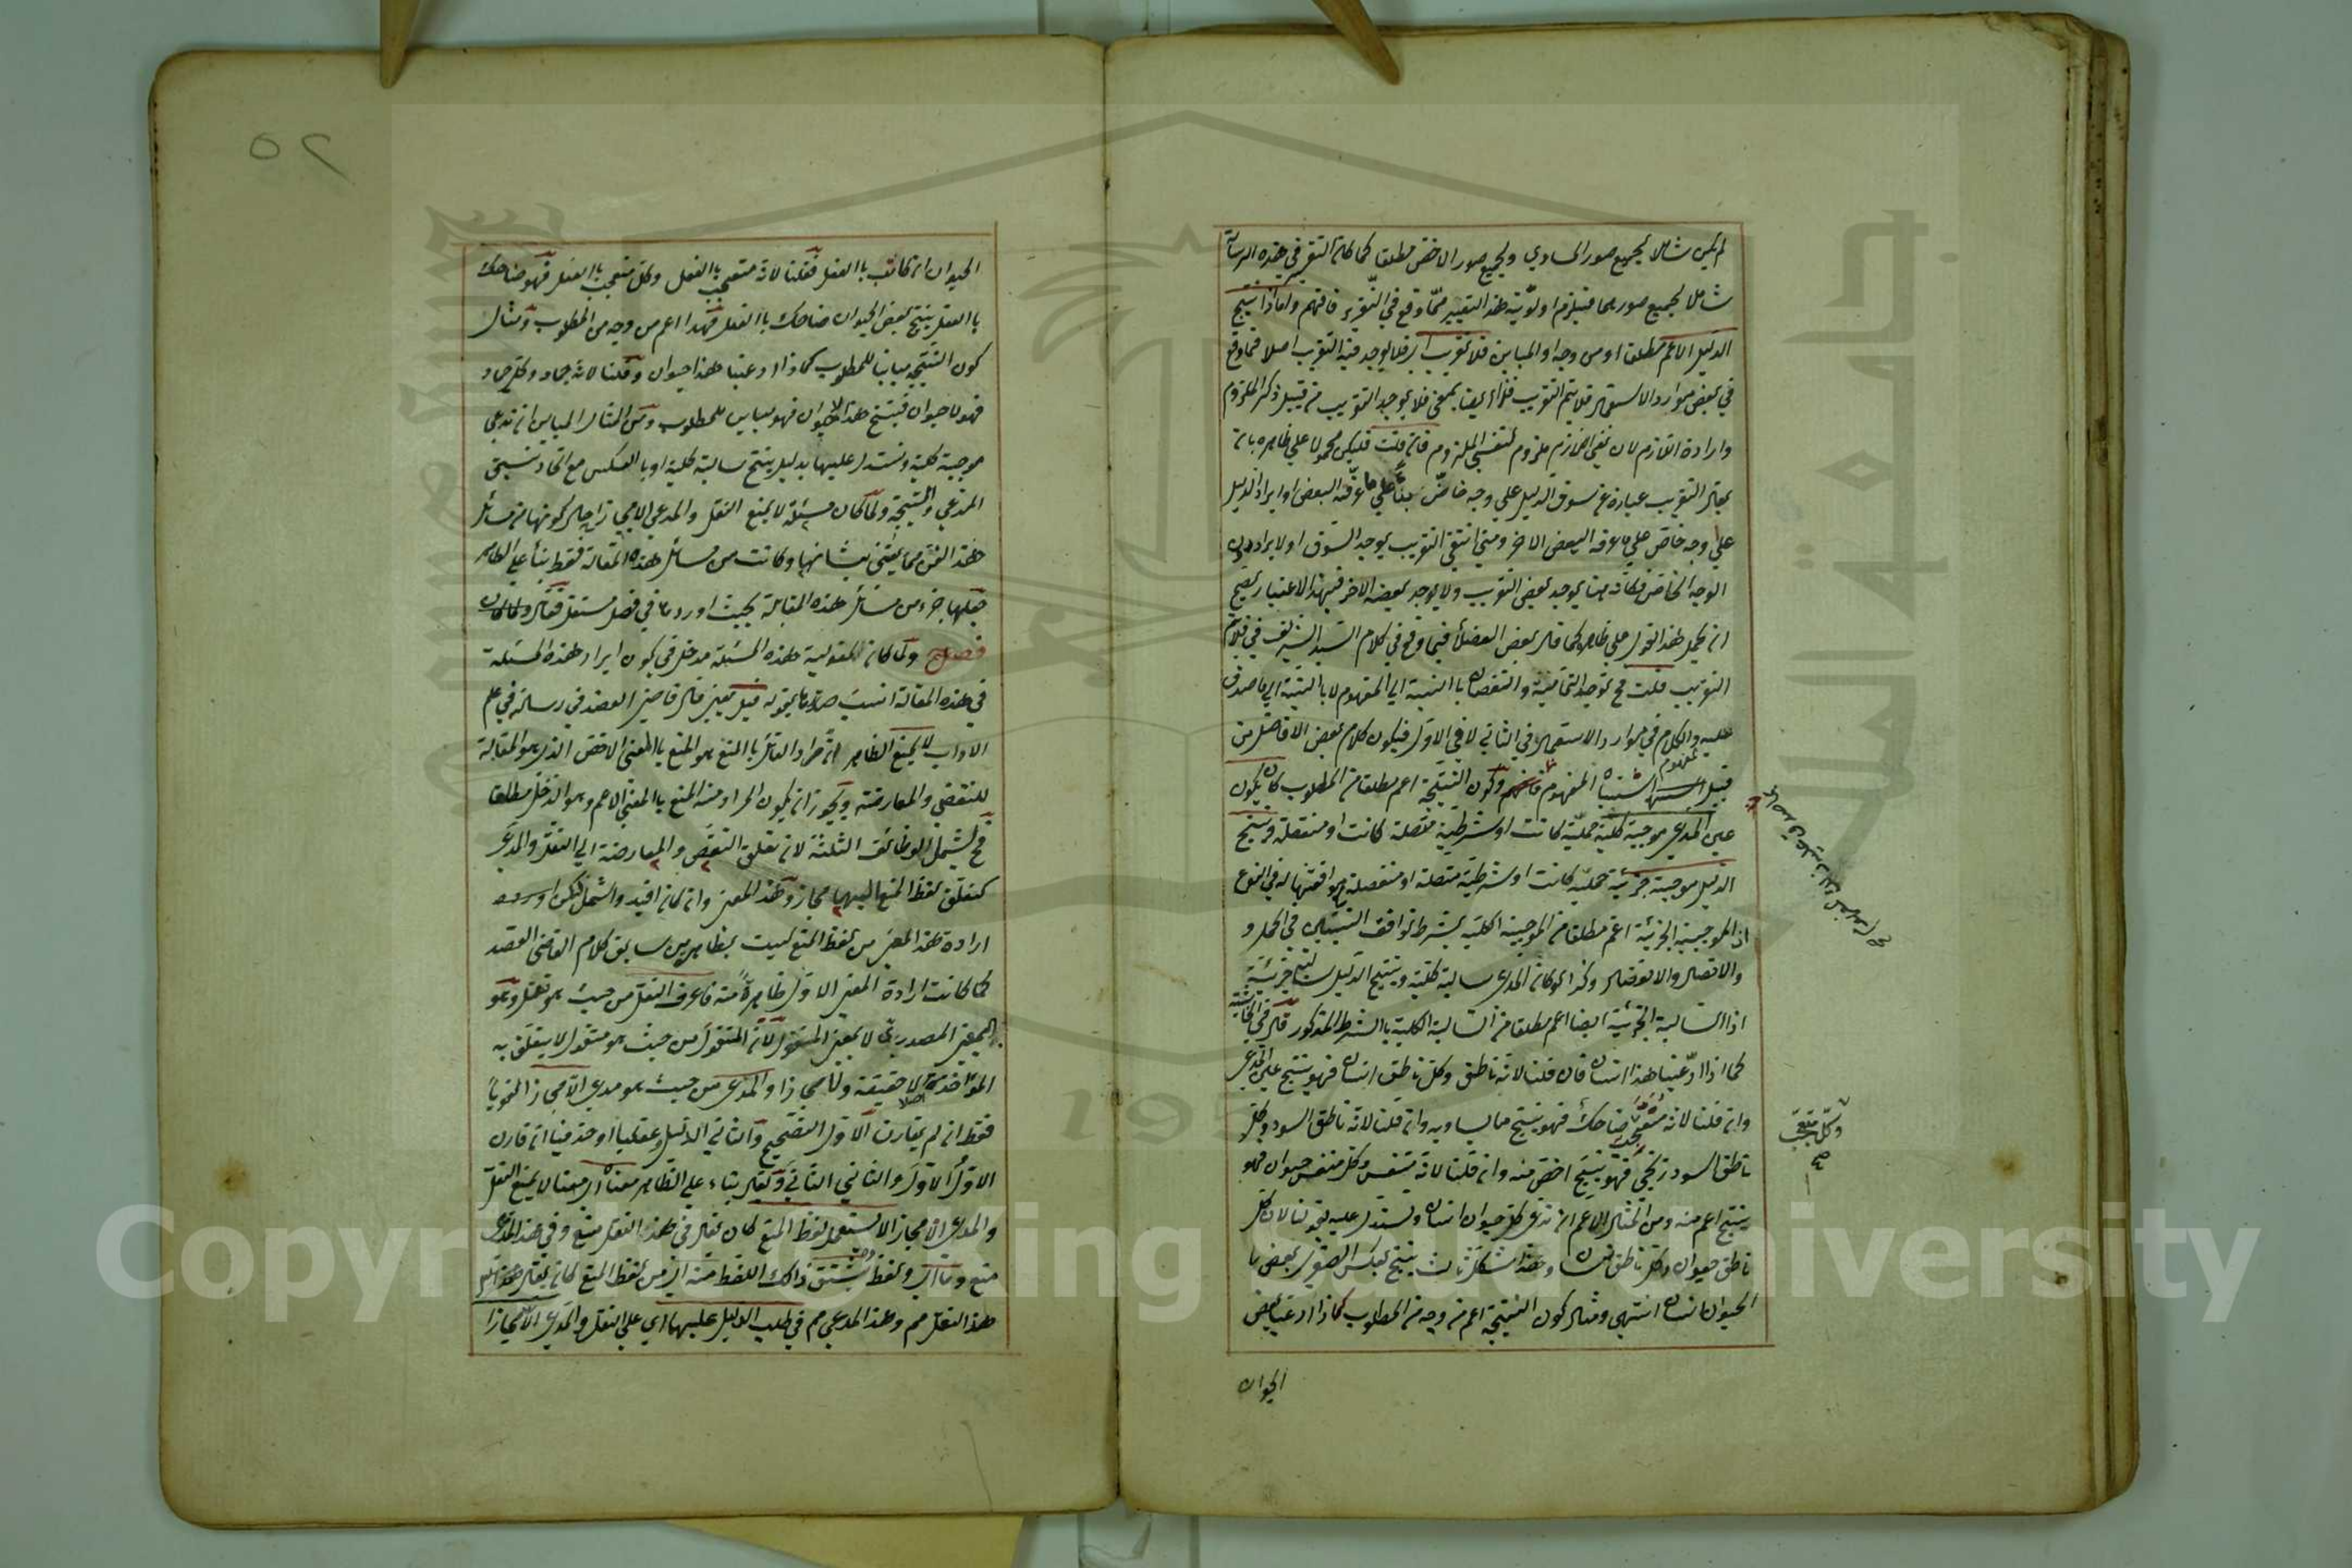 لم يكن شاملا لجميع صور المساوي ولجميع صور الاخص مطلقا كما كان التقرير في هذه الرسالة
شاملا لجميع صورهما فيلزم اولوية هذا التفسير مما وقع في التقرير فافهم واما اذا انتج
الدليل الاعم مطلقا او من وجه او المباين فلا تقريب اي فلا يوجد فيه التقريب اصلا فما وقع
في بعض موارد الاستعمال فلا يتم التقريب فهو ايضا بمعنى فلا يوجد التقريب من قبيل ذكر الملزوم
وارادة اللازم لان نفي اللازم ملزوم لنفي الملزوم فان قلت فليكن محمولا على ظاهره بان
يقال التقريب عبارة عن سوق الدليل على وجه خاص بناء على ما عرفه البعض او ايراد الدليل
على وجه خاص على ما عرفه البعض الاخر ومتى انتفى التقريب يوجد السوق او الايراد دون
الوجه الخاص فكانه ههنا يوجد بعض التقريب ولا يوجد بعضه الاخر فبهذا الاعتبار يصح
ان يحمل هذا القول على ظاهره كما قال بعض الفضلاء فيما وقع في كلام السيد الشريف في فلا يتم
التقريب قلت فح توجد التمامية والنقصان بالنسبة الى المفهوم لا بالنسبة الى ما صدق
عليه والكلام في موارد الاستعمال في الثاني لا في الاول فيكون كلام بعض الافاضل من
قبيل اشتباه المفهوم وكون النتيجة اعم مطلقا من المطلوب كان يكون
عين المدعى موجبة كلية حملية كانت او شرطية متصلة كانت او منفصلة وينتج
الدليل موجبة جزئية حملية كانت او شرطية متصلة او منفصلة موافقتها له في النوع
اذ الموجبة الجزئية اعم مطلقا من الموجبة الكلية بشرط توافق النسبتين في الحمل و
والاتصال والانفصال وكذا لو كان المدعى سالبة كلية وينتج الدليل سالبة جزئية
اذ السالبة الجزئية ايضا اعم مطلقا من السالبة الكلية بالشرط المذكور قال في الحاشية
كما اذا ادعينا هذا انسان فان قلنا لانه ناطق وكل ناطق انسان فهو ينتج عين المدعى
وان قلنا لانه متعجب ضاحك فهو ينتج ما يساويه وان قلنا لانه ناطق اسود وكل
ناطق اسود زنجي فهو ينتج اخص منه وان قلنا لانه متنفس وكل متنفس حيوان فهو
ينتج اعم منه ومن امثال الاعم ان ندعي كل حيوان انسان ونستدل عليه بقولنا لان كل
ناطق حيوان وكل ناطق انسان وهذا شكل ثالث ينتج بعكس الصغرى بعض
الحيوان انسان انتهى ومثال كون النتيجة اعم من وجه من المطلوب كما اذا ادعينا بعض
وكل متعجب
صح
الحيوان
٥٢
الحيوان انه كاتب بالفعل فقلنا لانه متعجب بالفعل وكل متعجب بالفعل فهو ضاحك
بالفعل ينتج بعض الحيوان ضاحك بالفعل فهذا اعم من وجه من المطلوب ومثال
كون النتيجة مباينا للمطلوب كما اذا ادعينا هذا حيوان وقلنا لانه جماد وكل جماد
فهو لا حيوان فينتج هذا لا حيوان فهو مباين للمطلوب ومن امثال المباين ان ندعي
موجبة كلية ونستدل عليها بدليل ينتج سالبة كلية او بالعكس مع اتحاد نسبتي
المدعى والنتيجة ولما كان مسئلة لا يمنع النقل والمدعى الا مجازا من اجل كونها من مسائل
هذا الفن مما يعتنى بشانها وكانت من مسائل هذه المقالة فقط بناء على الظاهر
جعلها جزء من مسائل هذه المقالة بحيث اوردها في فصل مستقل فقال
فصل ولما كان لمقولية هذه المسئلة مدخل في كون ايراد هذه المسئلة
في هذه المقالة انسب صدرها بقوله قيل يعني قال قاضي العضد في رسالته في علم
الاداب لا يمنع الظاهر ان مراد القائل بالمنع هو المنع بالمعنى الاخص الذي هو المقابلة
للنقض والمعارضة ويجوز ان يكون المراد منه المنع بالمعنى الاعم وهو الدخل مطلقا
فح يشمل الوظائف الثلثة لان تعلق النقض والمعارضة الى النقل والمدعى
كتعلق لفظ المنع اليهما مجاز وهذا المعنى وان كان افيد واشمل لكن
ارادة هذا المعنى من لفظ المنع ليست بظاهر من سابق كلام القاضي العضد
كما كانت ارادة المعنى الاول ظاهرة منه فاعرف النقل من حيث هو نقل وهو
بالمعنى المصدري لا بمعنى المنقول لان المنقول من حيث هو منقول لا يتعلق به
المؤاخذة اصلا لا حقيقة ولا مجازا والمدعى من حيث هو مدعى الا مجازا لغويا
فقط ان لم يقارن الاول التصحيح والثاني الدليل وعقليا او حذفيا ان قارن
الاول الاول والثاني الثاني وقيل بناء على الظاهر معناه اي معنا لا يمنع النقل
والمدعى الا مجازا لا يستعمل لفظ المنع كان يقال في هذا النقل منع وفي هذا المدعى
منع وما اي ولفظ يشتق ذلك اللفظ منه اي من لفظ المنع كان يقال
هذا النقل مم وهذا المدعى مم في طلب الدليل عليهما اي على النقل والمدعى الا مجازا
Copyright © King Saud University